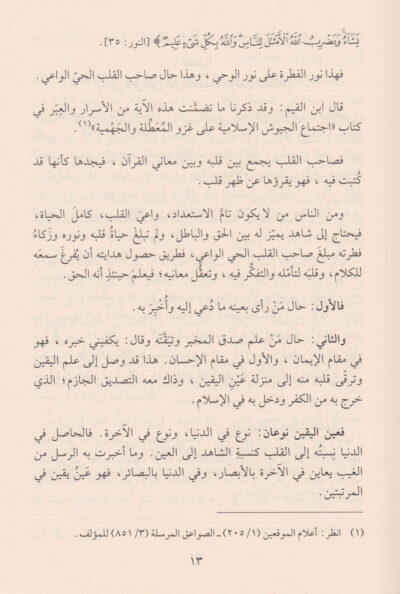 يَشَآءُ وَيَضْرِبُ ٱللَّهُ ٱلْأَمْثَٰلَ لِلنَّاسِ وَٱللَّهُ بِكُلِّ شَىْءٍ عَلِيمٌ ﴾ [النور: ٣٥].
فهذا نور الفطرة على نور الوحي، وهذا حال صاحب القلب الحيّ الواعي.
قال ابن القيم: وقد ذكرنا ما تضمَّنت هذه الآية من الأسرار والعِبَر في
كتاب «اجتماع الجيوش الإسلامية على غزو المُعَطِّلة والجَهْمية»(١).
فصاحب القلب يجمع بين قلبه وبين معاني القرآن، فيجدها كأنها قد
كُتبت فيه، فهو يقرؤها عن ظهر قلب.
ومن الناس من لا يكون تامَّ الاستعداد، واعيَ القلب، كاملَ الحياة،
فيحتاج إلى شاهد يميّز له بين الحق والباطل، ولم تبلغْ حياةُ قلبه ونوره وزَكاءُ
فطرته مبلغَ صاحب القلب الحي الواعي، فطريق حصول هدايته أن يُفرغَ سمعَه
للكلام، وقلبَه لتأمّله والتفكُّر فيه، وتعقُّل معانيه؛ فيعلمَ حينئذٍ أنه الحق.
فالأول: حال مَنْ رأى بعينه ما دُعي إليه وأُخْبِرَ به.
والثاني: حال مَنْ علم صدق المخبر وتيَقَّنَه وقال: يكفيني خبره، فهو
في مقام الإيمان، والأول في مقام الإحسان. هذا قد وصل إلى علم اليقين
وترقّى قلبه منه إلى منزلة عَيْنِ اليقين، وذاك معه التصديق الجازم؛ الذي
خرج به من الكفر ودخل به في الإسلام.
فعين اليقين نوعان: نوع في الدنيا، ونوع في الآخرة. فالحاصل في
الدنيا نِسبتُه إلى القلب كنسبةِ الشاهد إلى العين. وما أخبرت به الرسل من
الغيب يعاين في الآخرة بالأبصار، وفي الدنيا بالبصائر، فهو عَينُ يقين في
المرتبتين.
(١) انظر: أعلام الموقعين (١/ ٢٠٥) ـ الصواعق المرسلة (٣/ ٨٥١) للمؤلف.
١٣